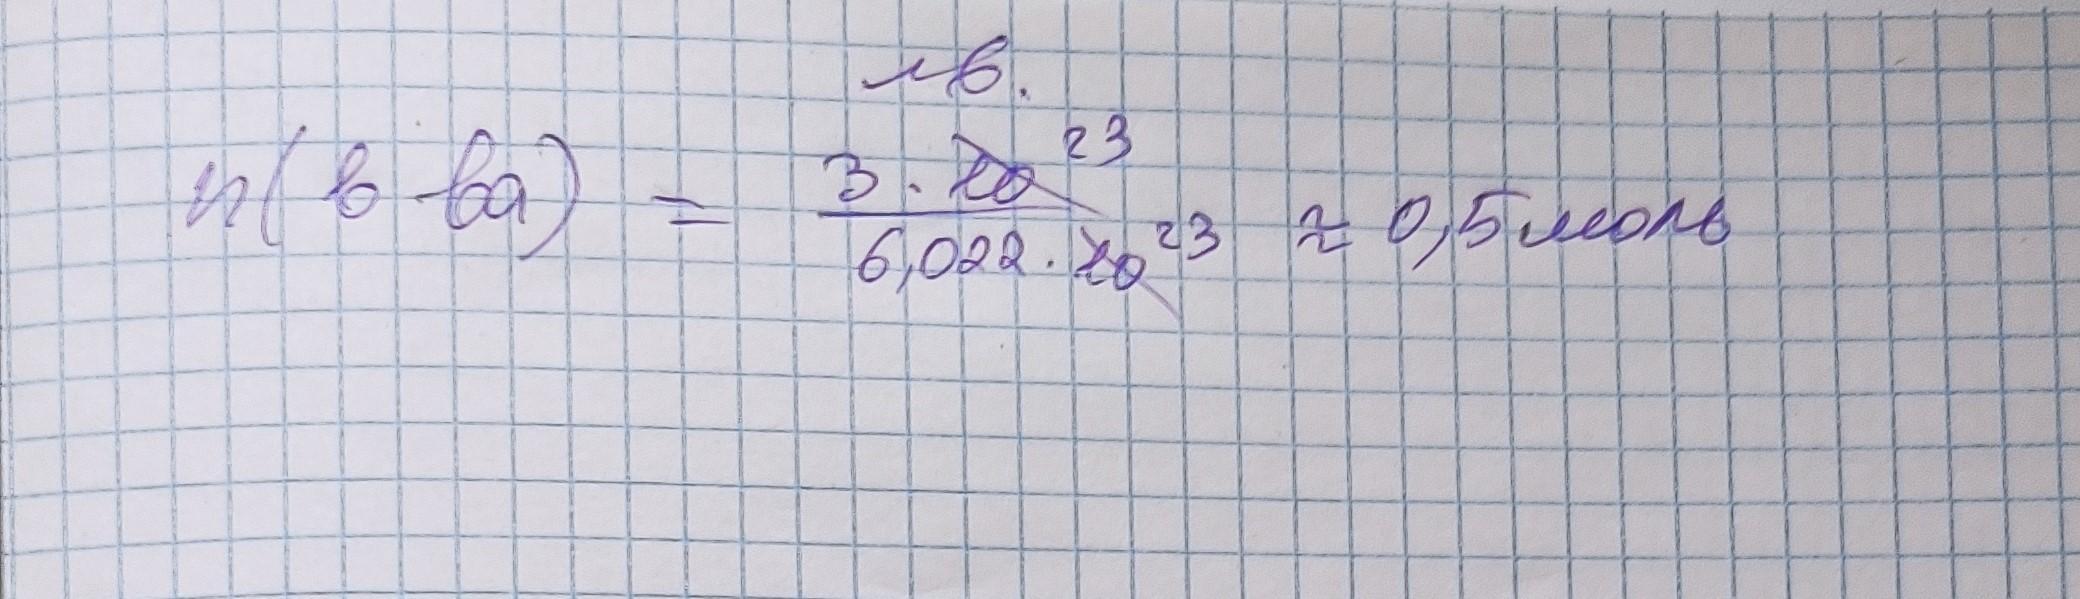 лв.
n(в-ва) = 3 · 10²³ / 6,022 · 10²³ ≈ 0,5 моль